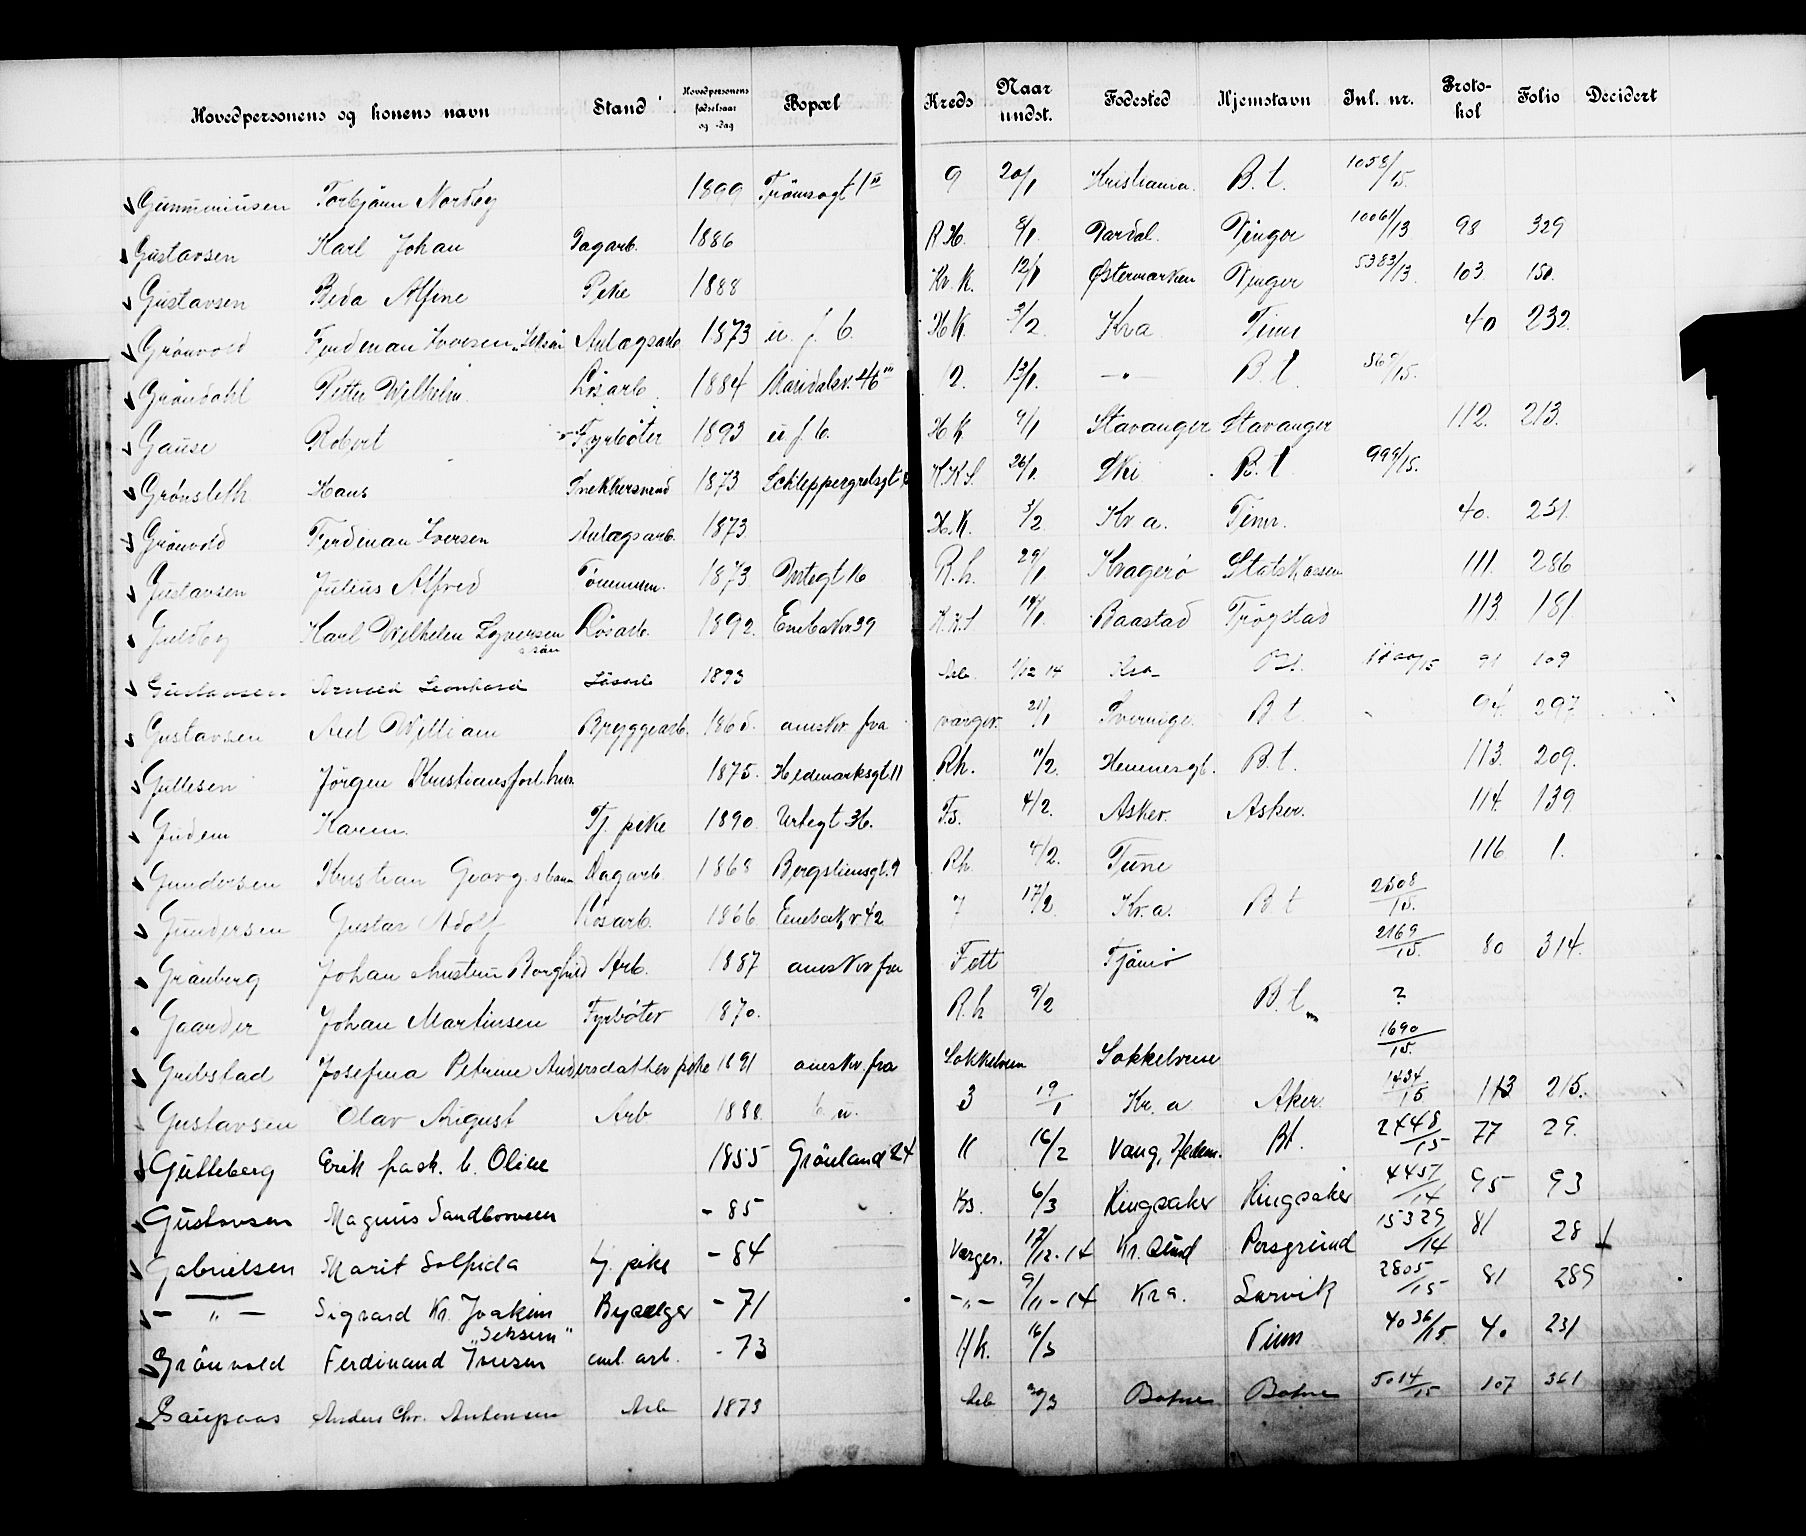 Hovedpersonens og konens navn Stand Hovedpersonens fødselsaar og -dag Bopæl Kreds Naar undst. Fødested Hjemstavn Inl. nr. Protokol Folio Decidert
Torbjørn Nordby 1899 9 20/1 Kristiania B.t. 1058/15.
Gustavsen Karl Johan Dagarb. 1886 R.H. Vardal. Vinger 10061/13 98 329
Gustavsen Beda Alfine Pike 1888 Kr.K. 12/1 Østermarken Vinger 5383/13. 103. 150.
Grönvold Ferdinan Iversen Anlægsarb 1873 u. f. b. H.K. 3/2 Kr.a Tinn 40 232.
Gröndahl Petter Wilhelm Lösarb 1884 Maridalsv. 46 12. 13/1. — " — B.t. /15.
Gause Robert Fyrböter 1893 u. f. b. H K /1 Stavanger Stavanger 112. 213.
Grönsleth Hans Snekkersvend 1873 H.K.S 26/1 Ski B.t. 999/15.
Grönvold Ferdinan Iversen Anlægsarb. 1873 H.K. 3/2 Kr.a. Tinn. 40. 231.
Gustavsen Julius Alfred Tömmerm. 1873 Urtegt 16 R.h. 29/1 Kragerö Statskassen 111. 286
Guldby Karl Wilhelm Lösarb. 1892. Enebakv 39 H.K.S 14/1 Baastad Trögstad 113. 181.
Gustavsen Arnold Leonhard Lösarb 1893 Arb. 1/12 14 Kra B.t. /15 91 109
Gustavsen Axel William Bryggearb. 186 ansökn fra 21/1 Sverrige. B t. 94. 297
Gullesen Jörgen 1875. Hedemarksgt. 11 Rh. 11/2. B.t. 113. 209.
Gudem Karen Tj. pike 1890. Urtegt. 36. F.s. 4/2. Asker. Asker. 114. 139
Gundersen Kristian Georg Dagarb. 1868 Bergsliensgt. 9 Rh 4/2. Tune 116 1.
Gundersen Gustav Adolf Lösarb. 1866. Enebakv 42 7 17/2. Kr.a. B t 2308/15.
Grönberg Johan Arb. 1887 ansökn fra Tjömö 2169/15. 80 314.
Gaarder Johan Martinsen Fyrböter 1870. R.h 9/2 B.t. ?
Grebstad Josefine Petrine Andersdatter pike 1891 ansökn. fra Sokkelven Sokkelven 1690/15.
Gustavsen Olav August Arb 1888. b. u. 3 19/1 Kr.a Aker. 1434/15 113 215.
Gulleberg Erik frask. b. Oline 1855 Grönland 24 11 16/2 Vang, Hedem. Bt. 2448/15 77 29.
Gustavsen Magnus - 85 Ks. 6/3 Ringsaker Ringsaker 4457/14 95 93
Gabrielsen Marit Solfrida tj. pike - 84 Værger. 17/12-14 Kr. Sund Porsgrund 15329/14 81 28
— " — Sigvard Kr. Joakim Bysælger - 71 — " — 9/11-14 Kra. Larvik 2805/15 81 289
Grönvold Ferdinand Iversen anl. arb. - 73 H.k. 16/3 Tinn 4036/15. 40 231
Anders Chr. Antonsen Arb 1873 Arb 20/3 Botne Botne 5014/15 107 361